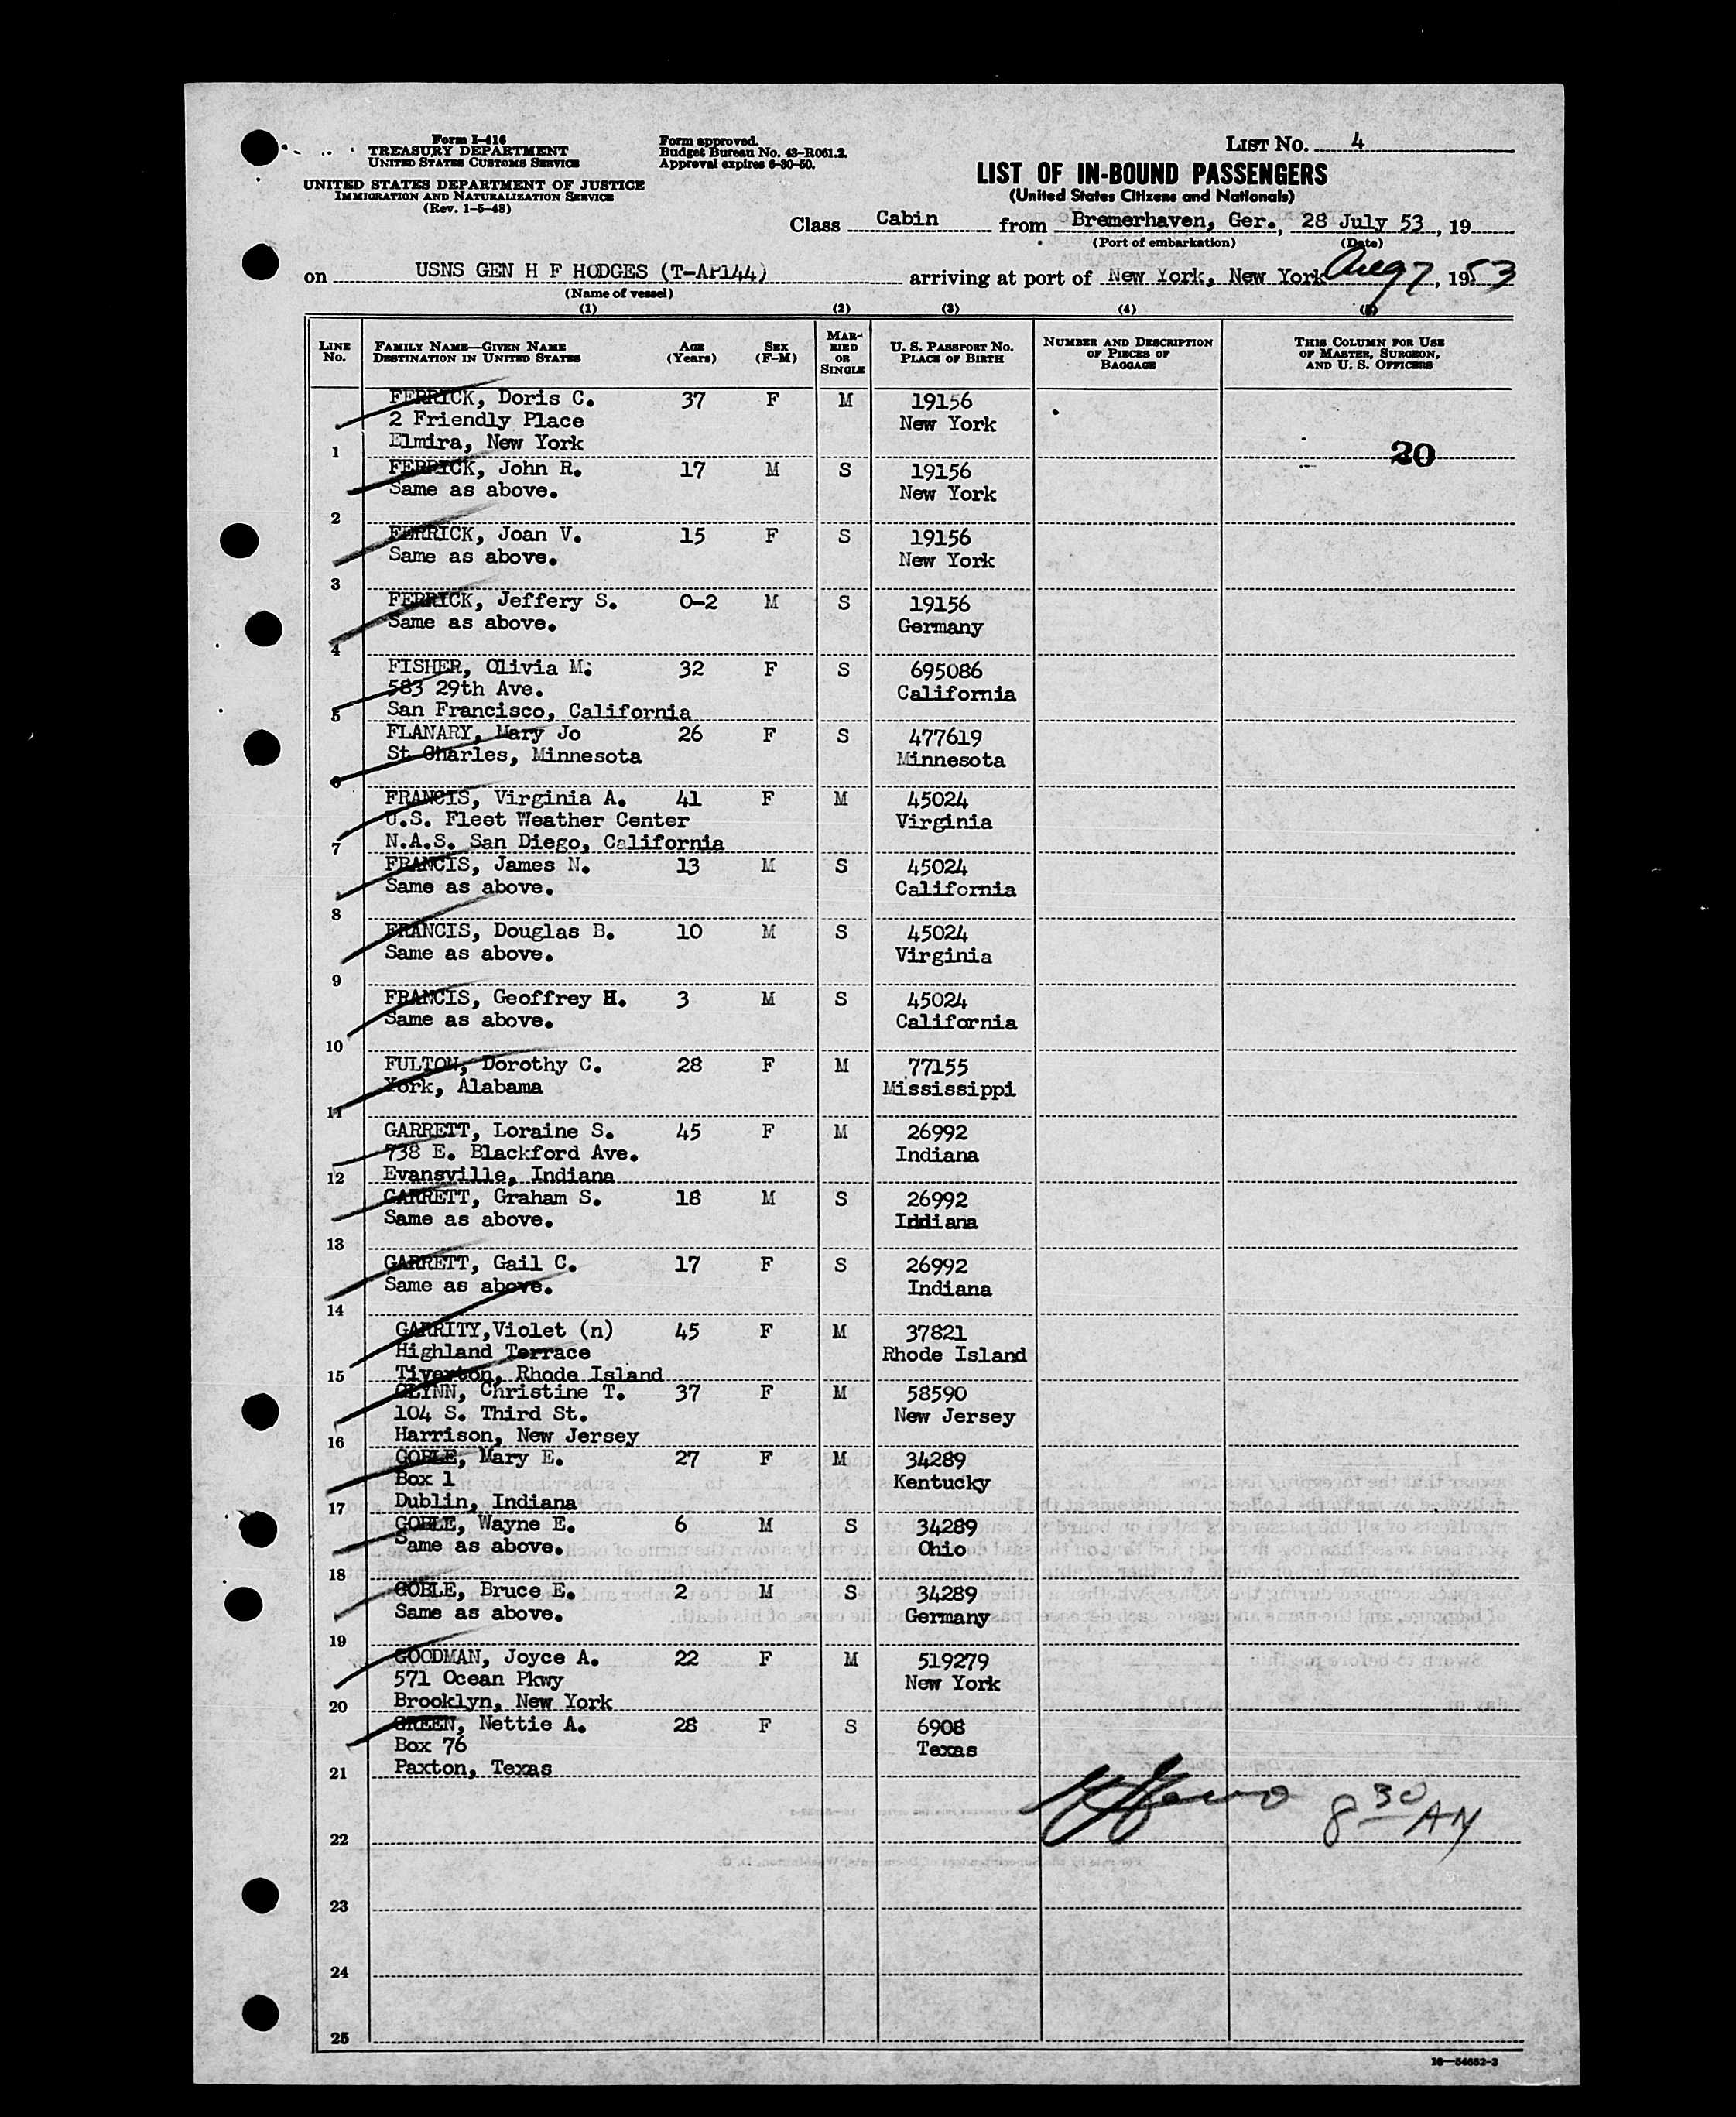 Form I-416
TREASURY DEPARTMENT
UNITED STATES CUSTOMS SERVICE
UNITED STATES DEPARTMENT OF JUSTICE
IMMIGRATION AND NATURALIZATION SERVICE
(Rev. 1-5-48)
Form approved.
Budget Bureau No. 43-R061.2.
Approval expires 6-30-50.
LIST No. 4
LIST OF IN-BOUND PASSENGERS
(United States Citizens and Nationals)
Class Cabin from Bremerhaven, Ger., 28 July 53, 19
(Port of embarkation) (Date)
on USNS GEN H F HODGES (T-AP144) arriving at port of New York, New York Aug 7, 1953
(Name of vessel)
(1) (2) (3) (4) (5)
LINE No. FAMILY NAME—GIVEN NAME DESTINATION IN UNITED STATES AGE (Years) SEX (F-M) MARRIED OR SINGLE U. S. PASSPORT No. PLACE OF BIRTH NUMBER AND DESCRIPTION OF PIECES OF BAGGAGE THIS COLUMN FOR USE OF MASTER, SURGEON, AND U. S. OFFICERS
FERRICK, Doris C. 37 F M 19156
2 Friendly Place New York
Elmira, New York
1 20
FERRICK, John R. 17 M S 19156
Same as above. New York
2
FERRICK, Joan V. 15 F S 19156
Same as above. New York
3
FERRICK, Jeffery S. 0-2 M S 19156
Same as above. Germany
4
FISHER, Olivia M. 32 F S 695086
583 29th Ave. California
5 San Francisco, California
FLANARY, Mary Jo 26 F S 477619
St Charles, Minnesota Minnesota
6
FRANCIS, Virginia A. 41 F M 45024
U.S. Fleet Weather Center Virginia
7 N.A.S. San Diego, California
FRANCIS, James N. 13 M S 45024
Same as above. California
8
FRANCIS, Douglas B. 10 M S 45024
Same as above. Virginia
9
FRANCIS, Geoffrey H. 3 M S 45024
Same as above. California
10
FULTON, Dorothy C. 28 F M 77155
York, Alabama Mississippi
11
GARRETT, Loraine S. 45 F M 26992
738 E. Blackford Ave. Indiana
12 Evansville, Indiana
GARRETT, Graham S. 18 M S 26992
Same as above. Indiana
13
GARRETT, Gail C. 17 F S 26992
Same as above. Indiana
14
GARRITY,Violet (n) 45 F M 37821
Highland Terrace Rhode Island
15 Tiverton, Rhode Island
GLYNN, Christine T. 37 F M 58590
104 S. Third St. New Jersey
16 Harrison, New Jersey
GOBLE, Mary E. 27 F M 34289
Box 1 Kentucky
17 Dublin, Indiana
GOBLE, Wayne E. 6 M S 34289
Same as above. Ohio
18
GOBLE, Bruce E. 2 M S 34289
Same as above. Germany
19
GOODMAN, Joyce A. 22 F M 519279
571 Ocean Pkwy New York
20 Brooklyn, New York
GREEN, Nettie A. 28 F S 6908
Box 76 Texas
21 Paxton, Texas
8 30 AM
22
23
24
25
16—54652-3